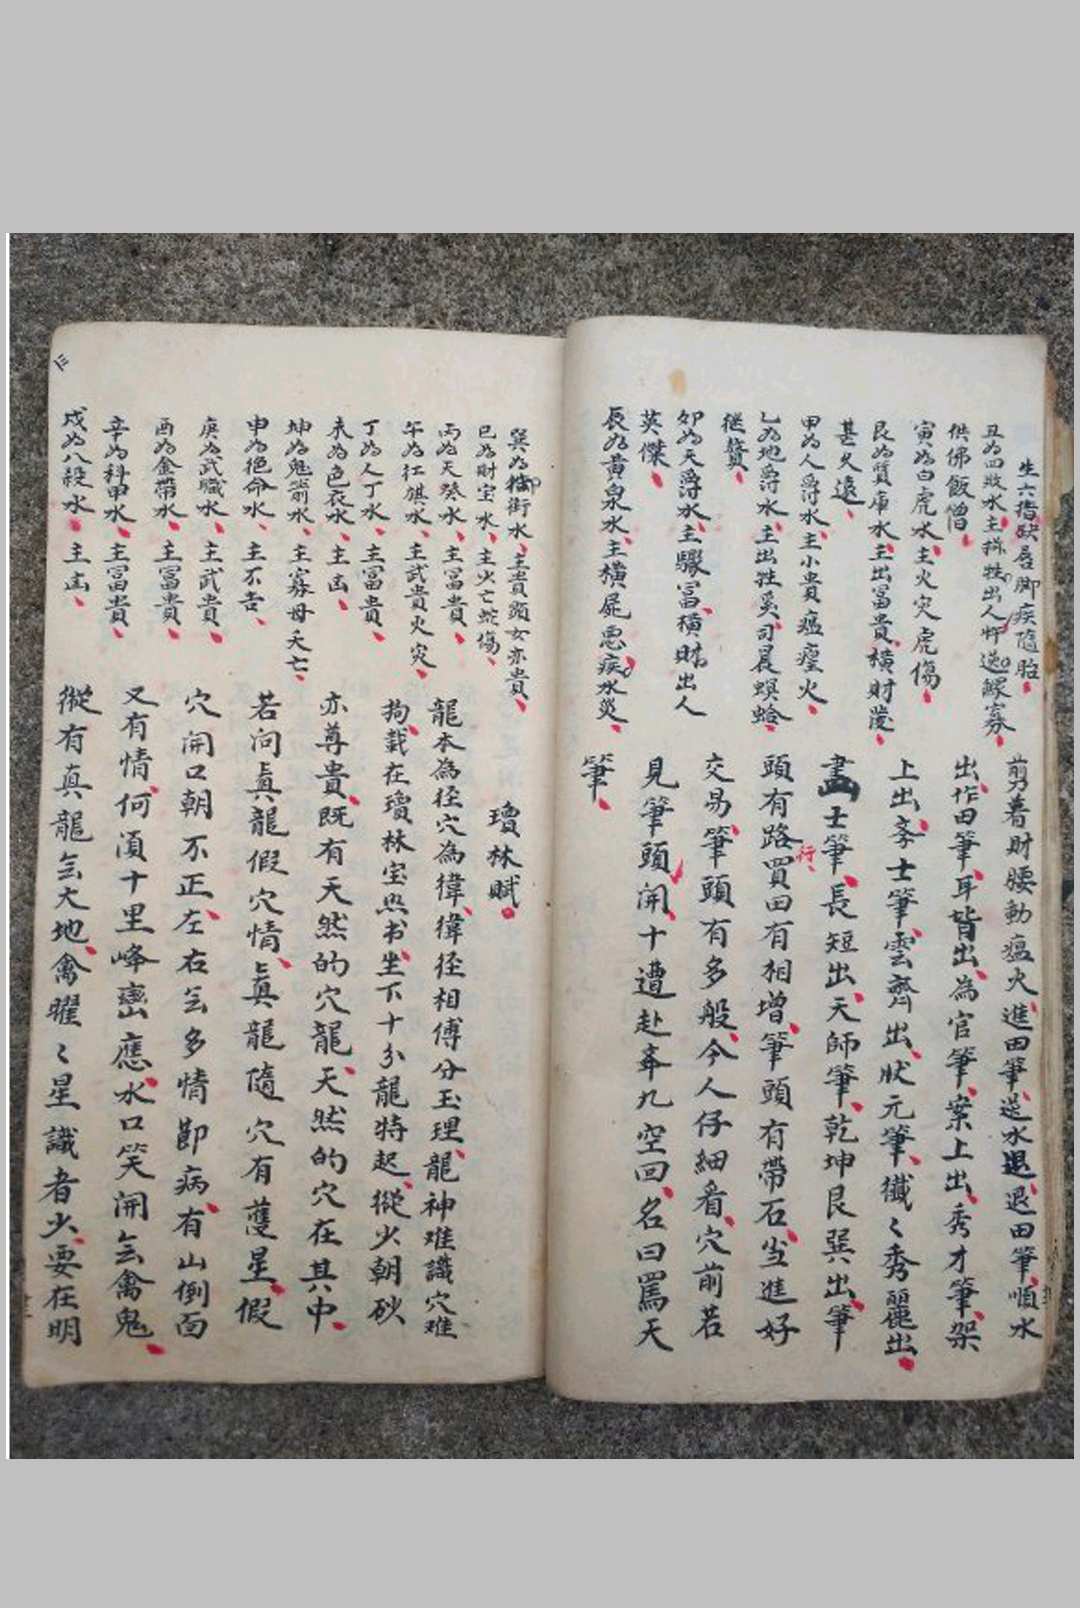 生六指缺唇脚疾隨胎、
丑為四敗水、主𤯝牲出人忤逆鰥寡、
供佛飯僧、
寅為白虎水、主火灾虎傷、
艮為質庫水、主出冨貴、横財發、
甚久遠、
甲為人爵水、主小貴瘟㾮火、
乙為地爵水、主出牲奚司晨螟蛉、
繼贅、
卯為天爵水、主驟冨、横財出人
英傑、
辰為黄泉水、主横屍惡疾水災、
剪着財腰動瘟火、進田筆、送水退、退田筆、順水
出、作田筆、耳皆出、為官筆、案上出、秀才筆、架
上出、孝士筆、雲齊出、状元筆、纖〻秀麗出、
畫士筆、長短出、天師筆、乾坤艮巽出、筆
頭有路行買田有相增、筆頭有帶石、当進好
交易、筆頭有多般、今人仔細看、穴前若
見筆頭開、十遭赴奔九空回、名曰罵天
筆、
巽為御街水、主貴顕女亦貴、
巳為財宝水、主火亡蛇傷、
丙為天癸水、主冨貴、
午為红旗水、主武貴火灾、
丁為人丁水、主冨貴、
未為色衣水、主凶、
坤為鬼箭水、主寡母夭亡、
申為绝命水、主不吉、
庚為武職水、主武貴、
酉為金帶水、主冨貴、
辛為科甲水、主冨貴、
戌為八殺水、主凶、
瓊林賦、
龍本為徑穴為緯、緯徑相傅分玉理、龍神难識穴难
拘、載在瓊林宝照书、坐下十分龍特起、縱少朝砂
亦尊貴、既有天然的穴龍、天然的穴在其中、
若问眞龍假穴情、眞龍隨穴有護星、假
穴開口朝不正、左右无多情節病、有山倒面
又有情、何湏十里峰巒應、水口笑開无禽鬼、
縱有真龍无大地、禽曜〻星識者少、要在明